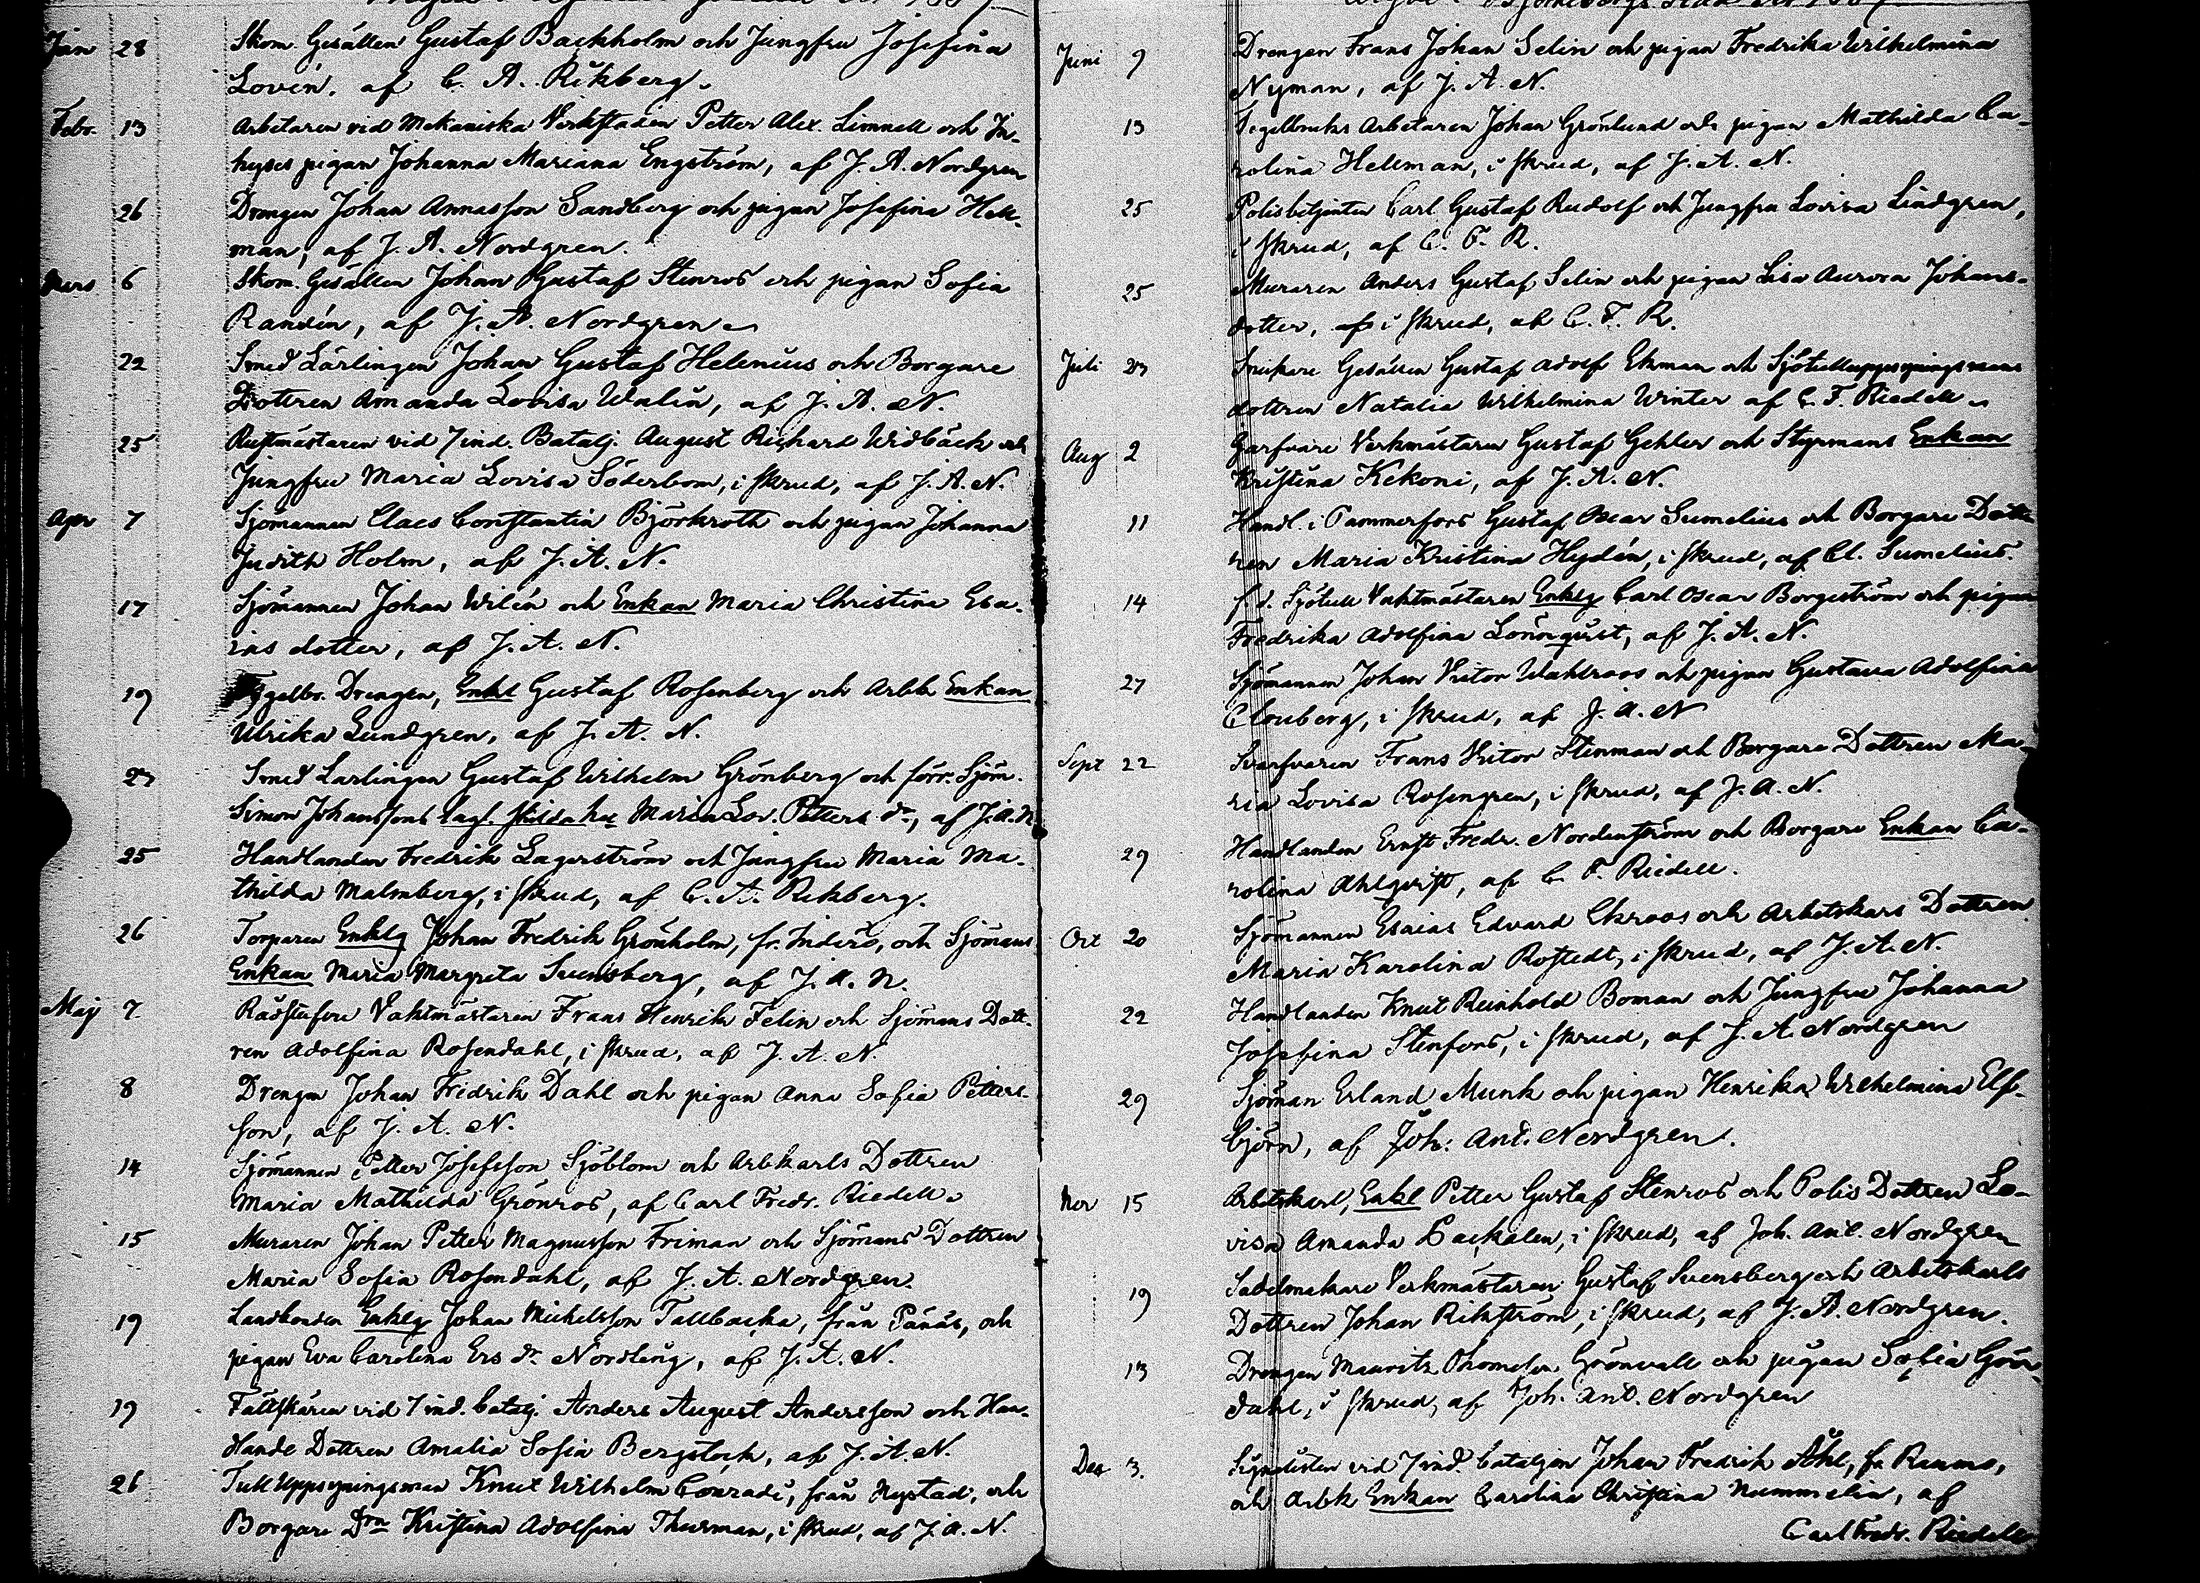 Jan 28 Skom. Gesällen Gustaf Backholm och Jungfru Josefina
Lovén, af C. A. Rikberg.
Febr. 13 Arbetaren vid Mekaniska Verkstaden Petter Alex. Limnell och In-
hyses pigan Johanna Mariana Engström, af J. A. Nordgren
26 Drengen Johan Annasson Sandberg och pigan Josefina Hell-
man, af J. A. Nordgren.
Mars 6 Skom. Gesällen Johan Gustaf Stenros och pigan Sofia
Randén, af J. A. Nordgren
22 Smed Lärlingen Johan Gustaf Helenius och Borgare
Dottren Amanda Lovisa Walin, af J. A. N.
25 Rustmästaren vid 7 ind. Batalj. August Richard Widbäck och
Jungfru Maria Lovisa Söderbom, i skrud, af J. A. N.
Apr 7 Sjömannen Claes Constantin Björkroth och pigan Johanna
Judith Holm, af J. A. N.
17 Sjömannen Johan Wilén och Enkan Maria Christina Esa-
ias dotter, af J. A. N.
19 Tegelbr. Drengen, Enkl Gustaf Rosenberg och Arbk Enkan
Ulrika Lundgren, af J. A. N.
23 Smed Lärlingen Gustaf Wilhelm Grönberg och förr. Sjöm.
Simon Johanssons lagl. skilda hu Maria Lov. Petters dr, af J. A. N.
25 Handlanden Fredrik Lagerström och Jungfru Maria Ma-
thilda Malmberg, i skrud, af C. A. Rikberg.
26 Torparen Enklg Johan Fredrik Grönholm, fr. Inderö, och Sjömans
Enkan Maria Margreta Svensberg, af J. A. N.
Maj 7 Rådstufvu Vaktmästaren Frans Henrik Felin och Sjömans Dott-
ren Adolfina Rosendahl, i skrud, af J. A. N.
8 Drengen Johan Fredrik Dahl och pigan Anna Sofia Petters-
son, af J. A. N.
14 Sjömannen Petter Josefsson Sjöblom och Arbkarls Dottren
Maria Mathilda Grönros, af Carl Fredr. Riedell.
15 Muraren Johan Petter Magnusson Friman och Sjömans Dottren
Maria Sofia Rosendahl, af J. A. Nordgren
19 Landbonden Enklg Johan Michelsson Tallbacka, från Pånäs, och
pigan Eva Carolina Ers dr Nordling, af J. A. N.
19 Fältskären vid 7 ind. batalj. Anders August Andersson och Han-
dlande Dottren Amalia Sofia Bergstock, af J. A. N.
26 Tull Uppsyningsman Knut Wilhelm Conradi, från Nystad, och
Borgare Drn Kristina Adolfina Thurman, i skrud, af J. A. N.
Juni 9 Drengen Frans Johan Selin och pigan Fredrika Wilhelmina
Nyman, af J. A. N.
13 Tegelbruks Arbetaren Johan Grönlund och pigan Mathilda Ca-
rolina Hellman, i skrud, af J. A. N.
25 Polisbetjenten Carl Gustaf Rudolf och Jungfru Lovisa Lindgren,
i skrud, af C. F. R.
25 Muraren Anders Gustaf Selin och pigan Lisa Aurora Johans-
dotter, i skrud, af C. F. R.
Juli 23 Snickare Gesällen Gustaf Adolf Ekman och Sjötulluppsyningsmans
dottren Natalia Wilhelmina Winter af C. F. Riedell
Aug 2 Garfvare Verkmästaren Gustaf Gehler och Styrmans Enkan
Kristina Kekoni, af J. A. N.
11 Handl. i Tammerfors Gustaf Oscar Sumelius och Borgare Dott-
ren Maria Kristina Hydén, i skrud, af Cl. Sumelius.
14 f. d. Sjötull Vaktmästaren Enklg Carl Oscar Borgström och pigan
Fredrika Adolfina Lönnqvist, af J. A. N.
27 Sjömannen Johan Victor Wahlroos och pigan Gustava Adolfina
Clouberg, i skrud, af J. A. N
Sept 22 Svarfvaren Frans Victor Stenman och Borgare Dottren Ma-
ria Lovisa Rosengren, i skrud, af J. A. N.
29 Handlanden Ernst Fredr. Nordenström och Borgare Enkan Ca-
rolina Ahlqvist, af C. F. Riedell.
Oct 20 Sjömannen Esaias Edvard Ekroos och Arbetskars Dottren
Maria Karolina Rostedt, i skrud, af J. A. N.
22 Handlanden Knut Reinhold Boman och Jungfru Johanna
Josefina Stenfors, i skrud, af J. A. Nordgren
29 Sjöman Erland Munk och pigan Henrika Wilhelmina Elf-
björn, af Joh. Ant. Nordgren.
Nov 15 Arbetskarl, Enkl Petter Gustaf Stenros och Polis Dottren Lo-
visa Amanda Backalen, i skrud, af Joh. Ant. Nordgren
19 Sadelmakare Verkmästaren Gustaf Svensberg och Arbetskarls
Dottren Johan Rikström, i skrud, af J. A. Nordgren.
13 Drengen Mauritz Grönvall och pigan Sofia Grön-
dahl, i skrud, af Joh. Ant. Nordgren
Dec 3. vid 7 ind. bataljon Johan Fredrik Åhl, fr. Raumo,
och Arbk Enkan Carolina Christina Nummelin, af
Carl Fredr. Riedell